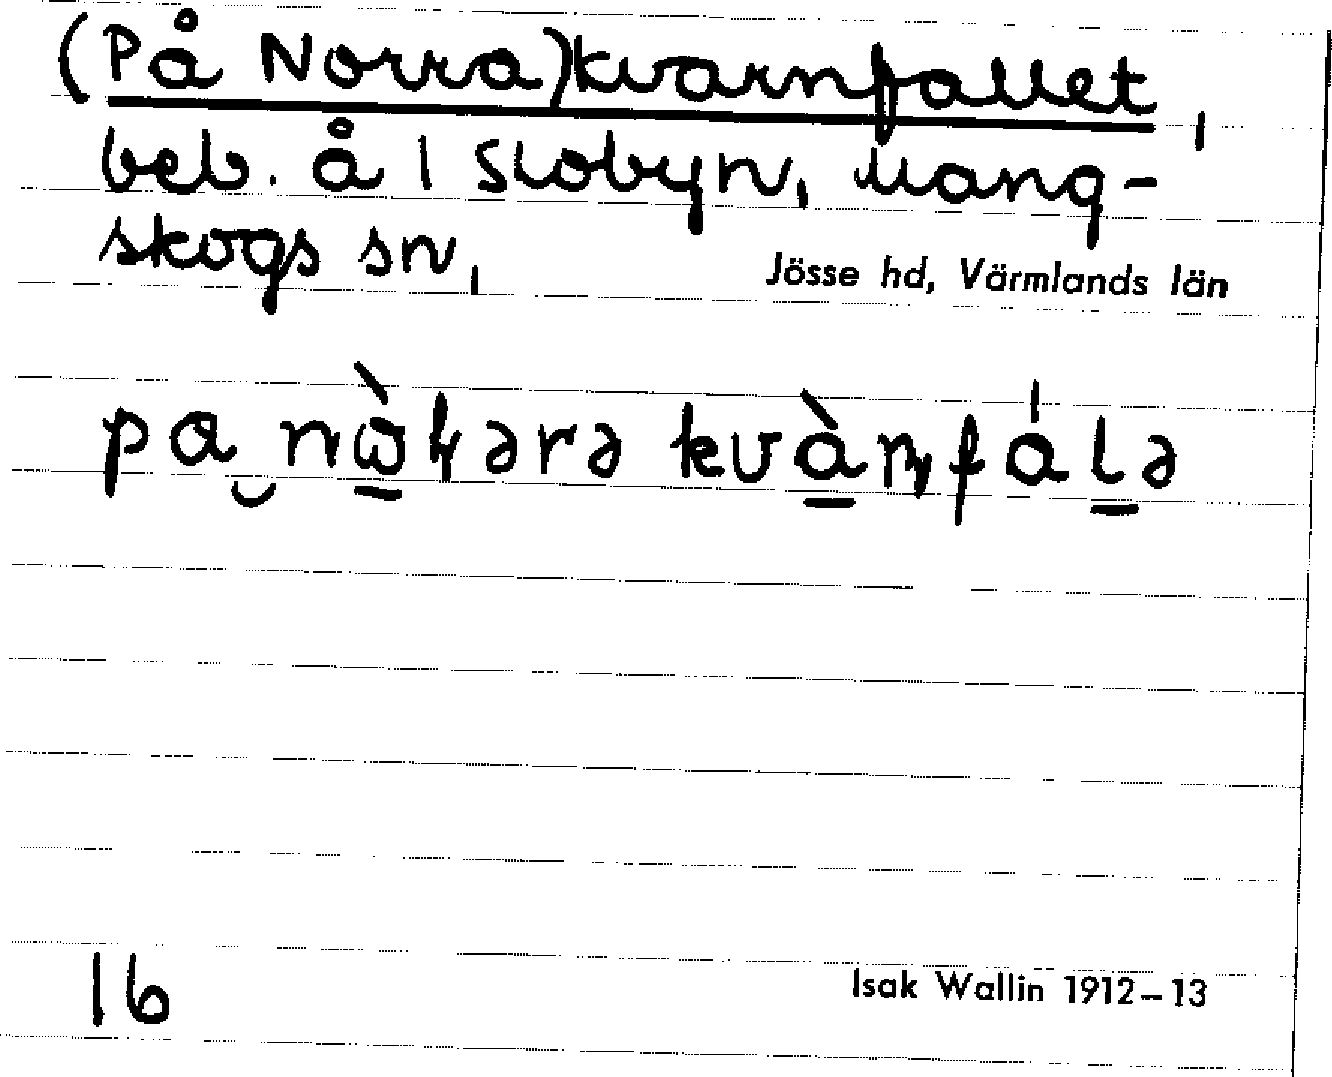 (På Norra)kvarnfallet,
beb. å l Slobyn, Mang-
skogs sn,
Jösse hd, Värmlands län
16
Isak Wallin 1912–13